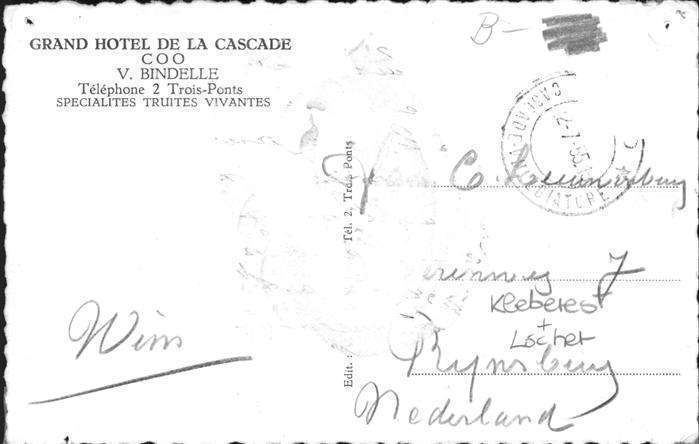 GRAND HOTEL DE LA CASCADE
COO
V. BINDELLE
Téléphone 2 Trois-Ponts
SPECIALITES TRUITES VIVANTES
B-
Edit. : Tél. 2, Trois Ponts
C.
7
Kleberest
+
Locher
Rynsburg
Nederland
Wim